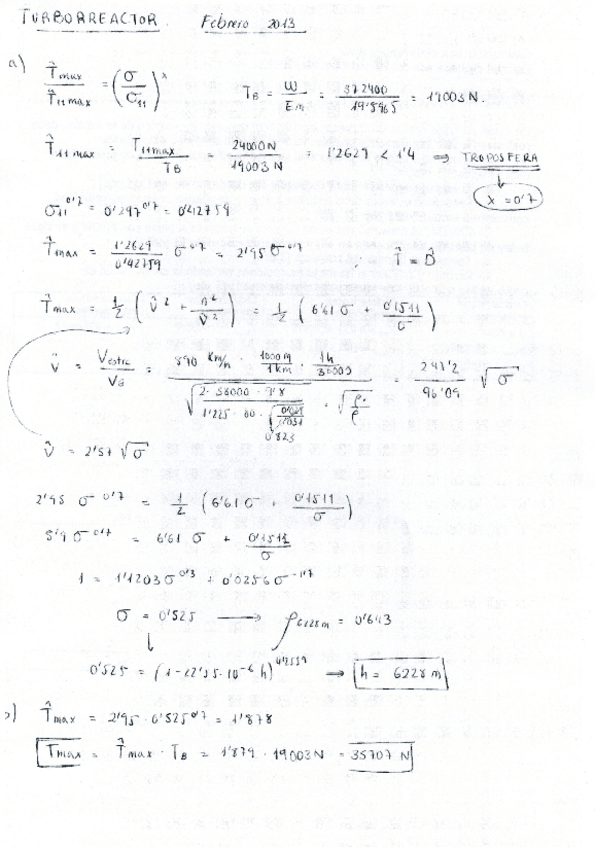 TURBORREACTOR. Febrero 2013
a) T̂max / T̂11max = (σ / σ11)^x    TB = W / Em = 372400 / 19'5965 = 19003 N.
T̂11max = T11max / TB = 24000 N / 19003 N = 1'2629 < 1'4 ⇒ TROPOSFERA
x = 0'7
σ11^0'7 = 0'297^0'7 = 0'42759
T̂max = 1'2629 / 0'42759 σ^0'7 = 2'95 σ^0'7    T̂ = D̂
T̂max = 1/2 (V̂² + n² / V̂²) = 1/2 (6'61 σ + 0'1511 / σ)
V̂ = / VB = 890 Km/h · 1000 m / 1 km · 1h / = 247'2 / 96'09 √σ
√(2 · 38000 · 9'8 / 1'225 · 80 · √) · √(ρ₀ / ρ)
0'823
V̂ = 2'57 √σ
2'95 σ^0'7 = 1/2 (6'61 σ + 0'1511 / σ)
5'9 σ^0'7 = 6'61 σ + 0'1511 / σ
1 = 1'1203 σ^0'3 + 0'0256 σ^-1'7
σ = 0'525 → ρ6228m = 0'643
0'525 = (1 - 22'55·10^-6 h)^4'2559 ⇒ h = 6228 m
b) T̂max = 2'95 · 0'525^0'7 = 1'878
Tmax = T̂max · TB = 1'879 · 19003 N = 35707 N